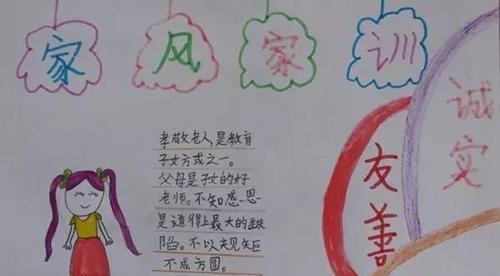 家风家训
孝敬老人,是教育
子女方式之一。
父母是子女的好
老师。不知感恩
是道德上最大的缺
陷。不以规矩
不成方圆。
友善
诚实